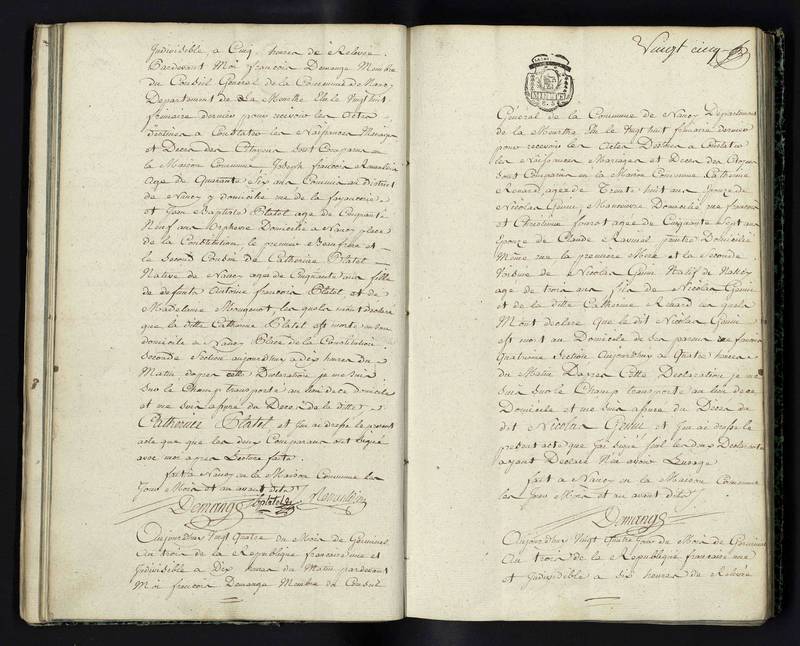 Indivisible a Cinq heures de Relevée.
Pardevant Moi françois Demange Membre
du Conseil Général de la Commune de Nancy
Departement de La Meurthe Elu le Vingt huit
frimaire dernier pour recevoir les Actes
destinés a Constater les Naissances Mariages
et Deces des Citoyens sont Comparus en
la Maison Commune Joseph françois
age de Quarante Six ans Commis au District
de Nancy y domicilié rue de la fayancerie
et Jean Baptiste Platel age de Cinquante
Neuf ans Orphevre Domicilié a Nancy place
de la Constitution, le premier Beaufrere et
le Second Cousin de Catherine Platel
Native de Nancy agée de Cinquante un ans fille
de defunts Antoine françois Platel, et de
Madelaine Mirugenot, les quels m'ont declaré
que la ditte Catherine Platel est morte en son
domicile a Nancy Place de la Constitution
Seconde Section aujourd'huy a dix heures du
Matin dapres cette Declaration je me suis
Sur le Champ transporté au lieu de ce domicile
et me suis assuré du Deces de la ditte
Catherine Platel, et j'ai dressé le present
acte que que les deux Comparans ont Signé
avec moi apres Lecture faite.
fait a Nancy en la Maison Commune les
Jour Mois et an avant dits
Demange Platel
Aujourd'huy Vingt Quatre du Mois de Germinal
An trois de la Republique francaise une et
Indivisible a Dix heures du Matin pardevant
Moi francois Demange Membre du Conseil
Vingt cinq
Général de la Commune de Nancy Departement
de la Meurthe Elu le Vingt huit frimaire dernier
pour recevoir les Actes Destines a Constater
les Naissances Mariages et Deces des Citoyens
sont Comparus en la Maison Commune Catherine
Renard agée de Trente huit ans Epouse de
Nicolas Genie, Manoeuvre Domicilié rue
et Christinne fourot agée de Cinquante Sept ans
Epouse de Claude Raymel peintre Domicilié
Même rue la premiere Mere et la Seconde
Voisine de Nicolas Genie Natif de Nancy
age de trois ans fils de Nicolas Genie
et de la ditte Catherine Renard les quels
M'ont declaré Que le dit Nicolas Genie
est mort au Domicile de ses parens
Quatrieme Section Aujourd'huy a Quatre heures
du Matin Dapres Cette Declaration je me
suis Sur le Champ transporté au lieu de ce
Domicile et me suis assuré du Deces du
dit Nicolas Genie et j'ai dressé le
present acte que j'ai Signé seul les deux Declarantes
ayant Declaré N'en avoir L'usage
fait a Nancy en la Maison Commune
les Jour Mois et an avant dits
Demange
Aujourd'huy Vingt Quatre Jour du Mois de Germinal
An trois de la Republique francaise une
et Indivisible a dix heures de Relevée